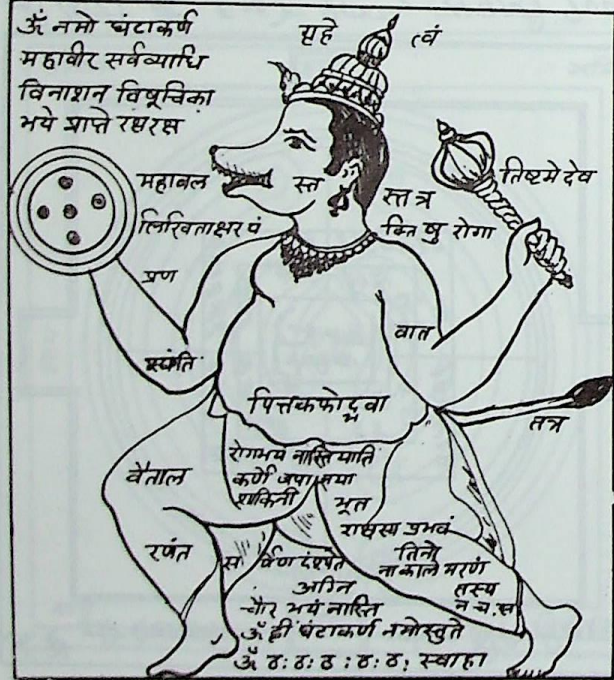 ॐ नमो घंटाकर्ण
महावीर सर्वव्याधि
विनाशन विषूचिका
भये प्राप्ते रक्ष रक्ष
गृहे त्वं
महाबल
स्त स्तत्र
तिष्टमे देव
लिखिताक्षर पं
क्ति षु रोगा
प्रण
श्यंति
वात
पित्तकफोद्भवा
तत्र
रोगभयं नास्ति याति
कर्णे जपा
शाकिनी भूत
वैताल
राक्षसा प्रभवं
तिनो
रणंत
नाकाले मरणं
तस्य
न च
अग्नि
चौर भयं नास्ति
ॐ ह्रीं घंटाकर्ण नमोस्तुते
ॐ ठः ठः ठः ठः ठः स्वाहा